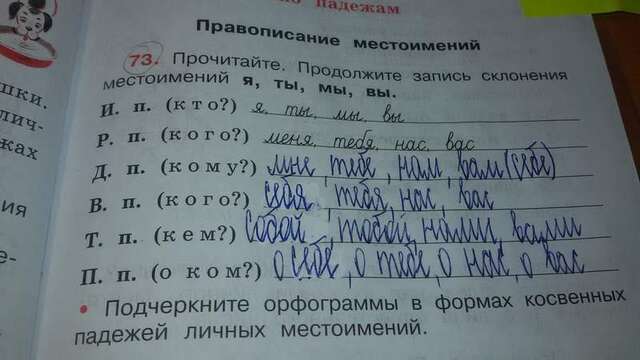 по падежам
Правописание местоимений
73. Прочитайте. Продолжите запись склонения
местоимений я, ты, мы, вы.
И. п. (кто?) я, ты, мы, вы
Р. п. (кого?) меня, тебя, нас, вас
Д. п. (кому?) мне, тебе, нам, вам (себе)
В. п. (кого?) себя, тебя, нас, вас
Т. п. (кем?) собой, тобой, нами, вами
П. п. (о ком?) о себе, о тебе, о нас, о вас
• Подчеркните орфограммы в формах косвенных
падежей личных местоимений.
шки.
лич-
жах
ия
е-